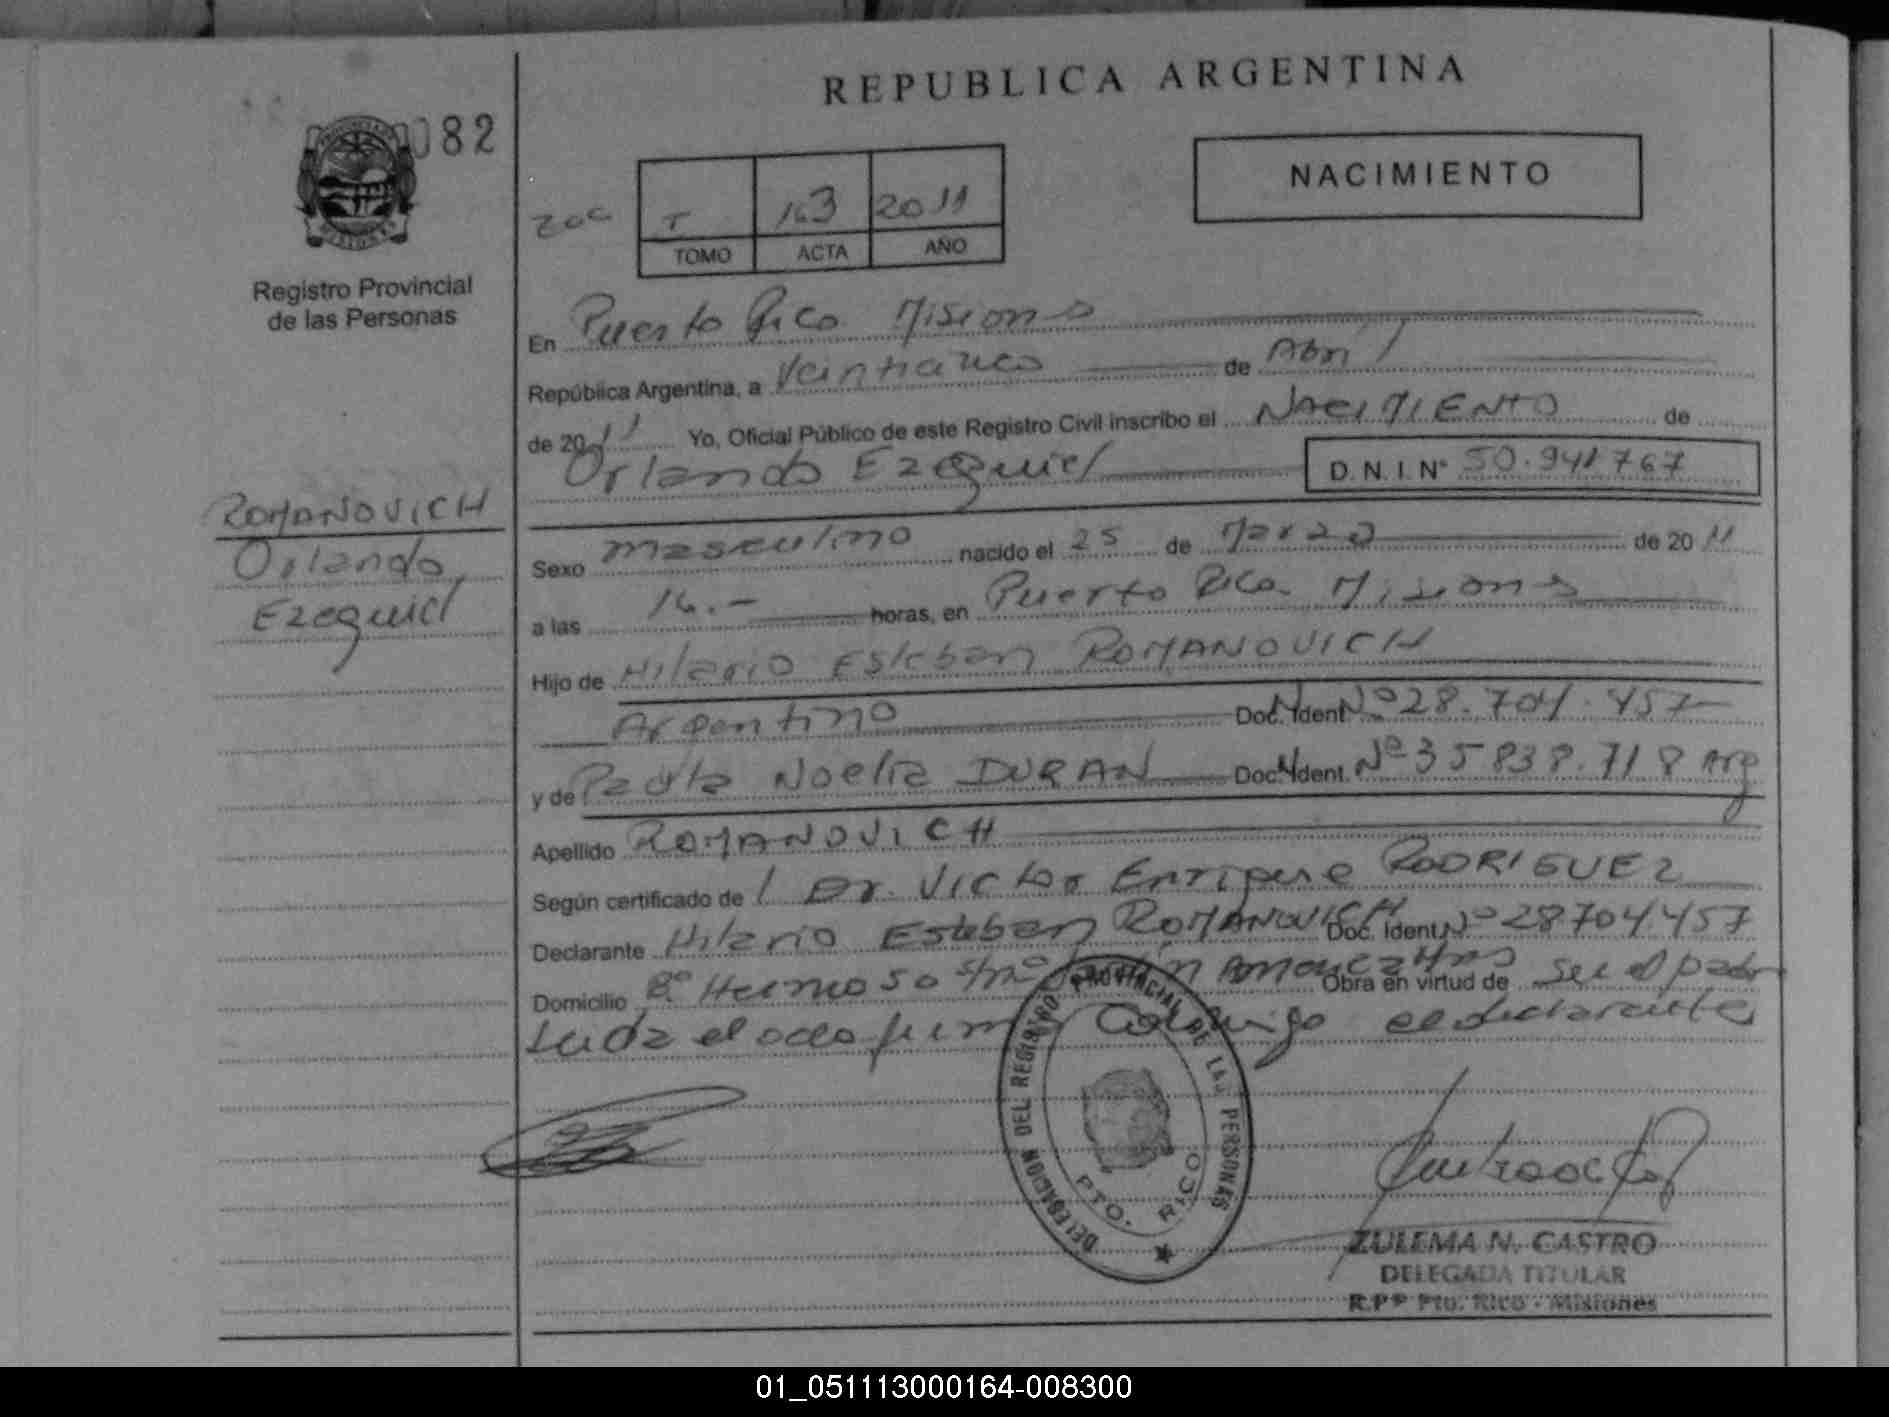 REPUBLICA ARGENTINA
082
NACIMIENTO
T 163 2011
TOMO ACTA AÑO
PROVINCIA DE MISIONES
Registro Provincial
de las Personas
En Puerto Rico Misiones
República Argentina, a Veinticinco de Abril
de 2011 Yo, Oficial Público de este Registro Civil inscribo el NACIMIENTO de
Orlando Ezequiel D.N.I.Nº 50.941767
ROMANOVICH
Orlando
Ezequiel
Sexo masculino nacido el 25 de Marzo de 2011
a las 16.- horas, en Puerto Rico Misiones
Hijo de Hilario Esteban ROMANOVICH
Argentino Doc. Ident. Nº 28.704.457
y de Paula Noelia DURAN Doc. Ident. Nº 35838.718 Arg
Apellido ROMANOVICH
Según certificado de / Dr. Victor Enrique RODRIGUEZ
Declarante Hilario Esteban ROMANOVICH Doc. Ident. Nº 28704457
Domicilio Bº Hermoso Obra en virtud de ser el padre
Leida el acta firma Conmigo el declarante
DELEGACION DEL REGISTRO PROVINCIAL DE LAS PERSONAS
PTO. RICO
ZULEMA N. CASTRO
DELEGADA TITULAR
R.P.P Pto. Rico - Misiones
01_051113000164-008300